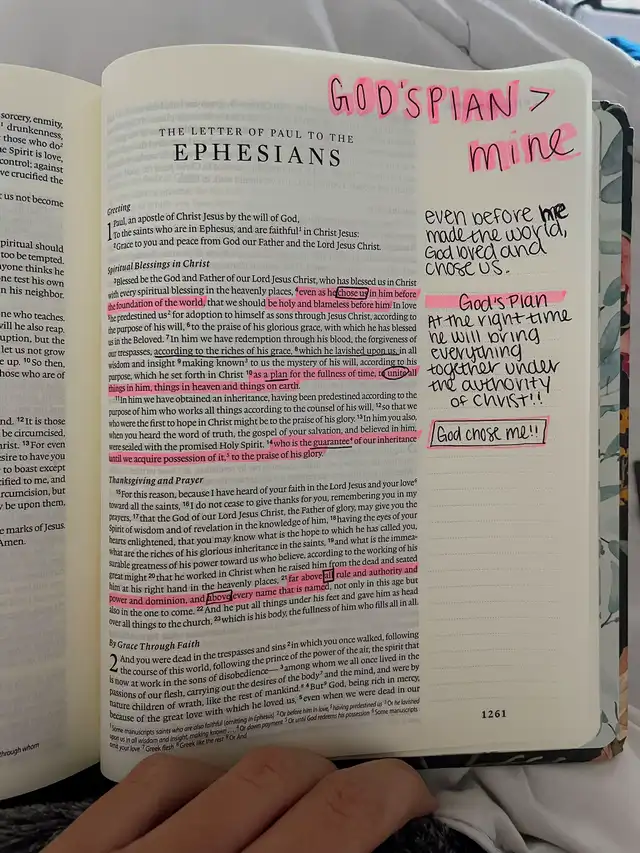 sorcery, enmity,
drunkenness,
those who do
e Spirit is love,
control; against
ve crucified the
us not become
piritual should
too be tempted.
nyone thinks he
one test his own
in his neighbor.
ne who teaches.
will he also reap.
ruption, but the
let us not grow
e up. 10 So then,
hose who are of
nd. 12 It is those
be circumcised,
hrist. 13 For even
esire to have you
to boast except
cified to me, and
rcumcision, but
y be upon them.
e marks of Jesus.
Amen.
through whom
GOD'S PLAN >
mine
THE LETTER OF PAUL TO THE
EPHESIANS
Greeting
1 Paul, an apostle of Christ Jesus by the will of God,
To the saints who are in Ephesus, and are faithful1 in Christ Jesus:
2Grace to you and peace from God our Father and the Lord Jesus Christ.
Spiritual Blessings in Christ
3Blessed be the God and Father of our Lord Jesus Christ, who has blessed us in Christ
with every spiritual blessing in the heavenly places, 4even as he chose us in him before
the foundation of the world, that we should be holy and blameless before him. In love
5he predestined us2 for adoption to himself as sons through Jesus Christ, according to
the purpose of his will, 6to the praise of his glorious grace, with which he has blessed
us in the Beloved. 7In him we have redemption through his blood, the forgiveness of
our trespasses, according to the riches of his grace, 8which he lavished upon us, in all
wisdom and insight 9making known3 to us the mystery of his will, according to his
purpose, which he set forth in Christ 10as a plan for the fullness of time, to unite all
things in him, things in heaven and things on earth.
11In him we have obtained an inheritance, having been predestined according to the
purpose of him who works all things according to the counsel of his will, 12so that we
who were the first to hope in Christ might be to the praise of his glory. 13In him you also,
when you heard the word of truth, the gospel of your salvation, and believed in him,
were sealed with the promised Holy Spirit, 14who is the guarantee4 of our inheritance
until we acquire possession of it,5 to the praise of his glory.
Thanksgiving and Prayer
15For this reason, because I have heard of your faith in the Lord Jesus and your love6
toward all the saints, 16I do not cease to give thanks for you, remembering you in my
prayers, 17that the God of our Lord Jesus Christ, the Father of glory, may give you the
Spirit of wisdom and of revelation in the knowledge of him, 18having the eyes of your
hearts enlightened, that you may know what is the hope to which he has called you,
what are the riches of his glorious inheritance in the saints, 19and what is the immea-
surable greatness of his power toward us who believe, according to the working of his
great might 20that he worked in Christ when he raised him from the dead and seated
him at his right hand in the heavenly places, 21far above all rule and authority and
power and dominion, and above every name that is named, not only in this age but
also in the one to come. 22And he put all things under his feet and gave him as head
over all things to the church, 23which is his body, the fullness of him who fills all in all.
By Grace Through Faith
2 And you were dead in the trespasses and sins 2in which you once walked, following
the course of this world, following the prince of the power of the air, the spirit that
is now at work in the sons of disobedience—3among whom we all once lived in the
passions of our flesh, carrying out the desires of the body7 and the mind, and were by
nature children of wrath, like the rest of mankind.8 4But9 God, being rich in mercy,
because of the great love with which he loved us, 5even when we were dead in our
1 Some manuscripts saints who are also faithful (omitting in Ephesus) 2 Or before him in love, 3 having predestined us 3 Or he lavished
upon us in all wisdom and insight, making known . . . 4 Or down payment 5 Or until God redeems his possession 6 Some manuscripts
omit your love 7 Greek flesh 8 Greek like the rest 9 Or And
even before he
made the world,
God loved and
chose us.
God's Plan
At the right time
he will bring
everything
together under
the authority
of Christ!!
God chose me!!
1261